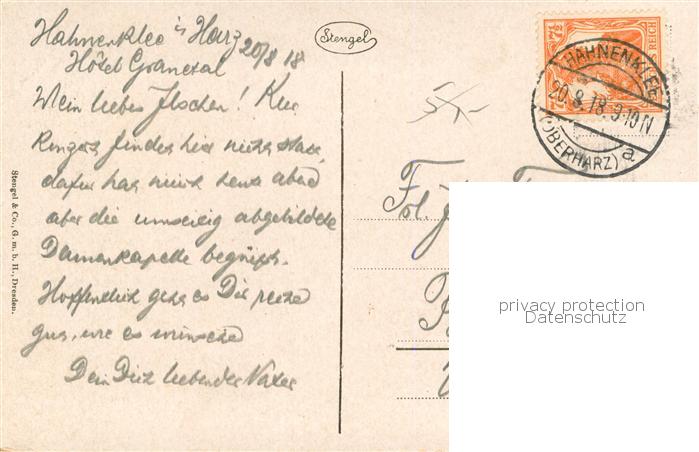 Hahnenklee i. Harz 20/8 18
Hôtel Granetal
Mein liebes Ilschen! Kur
findet hier nicht statt,
dafür hat mich heute abend
aber die umseitig abgebildete
Damenkapelle begrüsst.
Hoffentlich geht es Dir recht
gut, wie es wünscht
Dein Dich liebender Vater
Stengel
Stengel & Co., G. m. b. H., Dresden.
7½
REICH
HAHNENKLEE
20.8.18.9-10N
(OBERHARZ) a
Frl.
privacy protection
Datenschutz